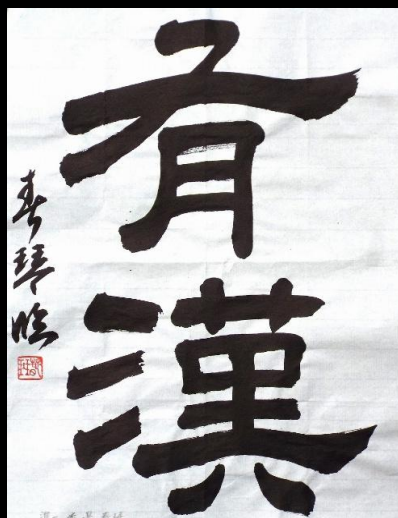 有漢
春琴臨